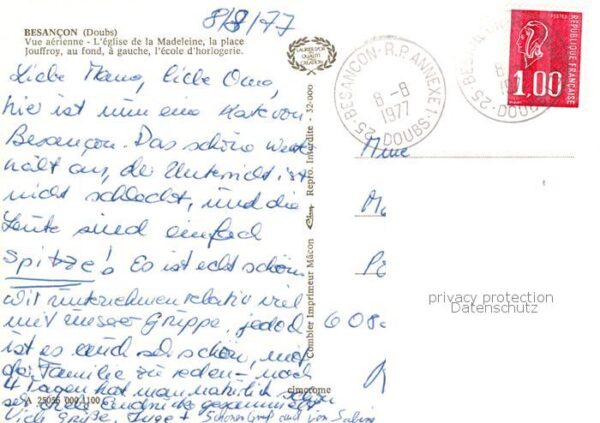 8/8/77
BESANÇON (Doubs)
Vue aérienne - L'église de la Madeleine, la place
Jouffroy, au fond, à gauche, l'école d'horlogerie.
LAURIER D'OR
DE LA
QUALITÉ
CRÉATION
25-BESANÇON-R.P. ANNEXE 1-DOUBS
8-8
1977
POSTES
REPUBLIQUE FRANÇAISE
1,00
Liebe Mama, liebe Oma,
hier ist nun eine Karte von
Besançon. Das schöne Wetter
hält an, der Unterricht ist
nicht schlecht, und die
Leute sind einfach
Spitze! Es ist echt schön.
Wir unternehmen relativ viel
mit unserer Gruppe, jedoch
ist es auch sehr schön, mit
der Familie zu reden - nach
4 Tagen hat man natürlich schon
sehr viele Eindrücke gesammelt.
Viele Grüße, Inge + Schönen Gruß auch von Sabine
A 25056 000 1100
cimcrome
Combier Imprimeur Mâcon
Repro. Interdite - 32-000
Mme
608
privacy protection
Datenschutz